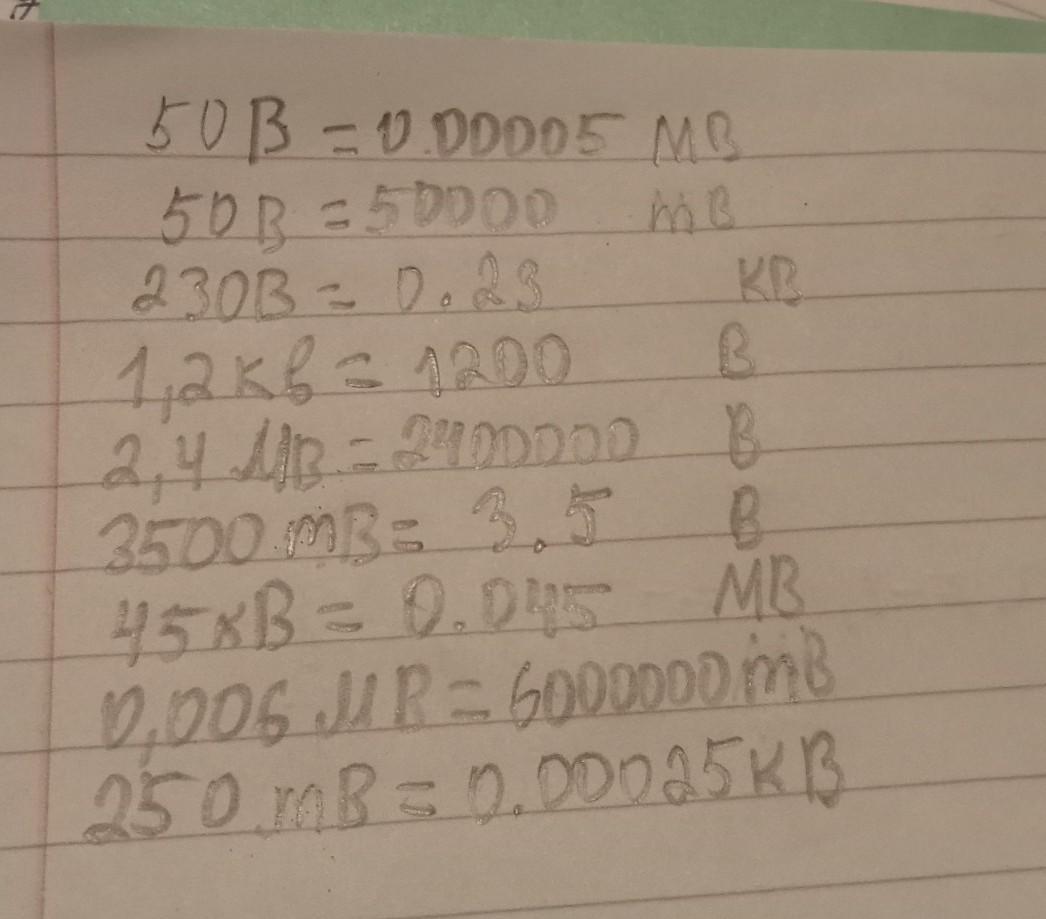 50B = 0.00005 MB
50B = 50000 mB
230B = 0.23 KB
1,2кв = 1200 B
2,4 MB = 2400000 B
3500 mB = 3.5 B
45кB = 0.045 MB
0,006 MB = 6000000 mB
250 mB = 0.00025 KB